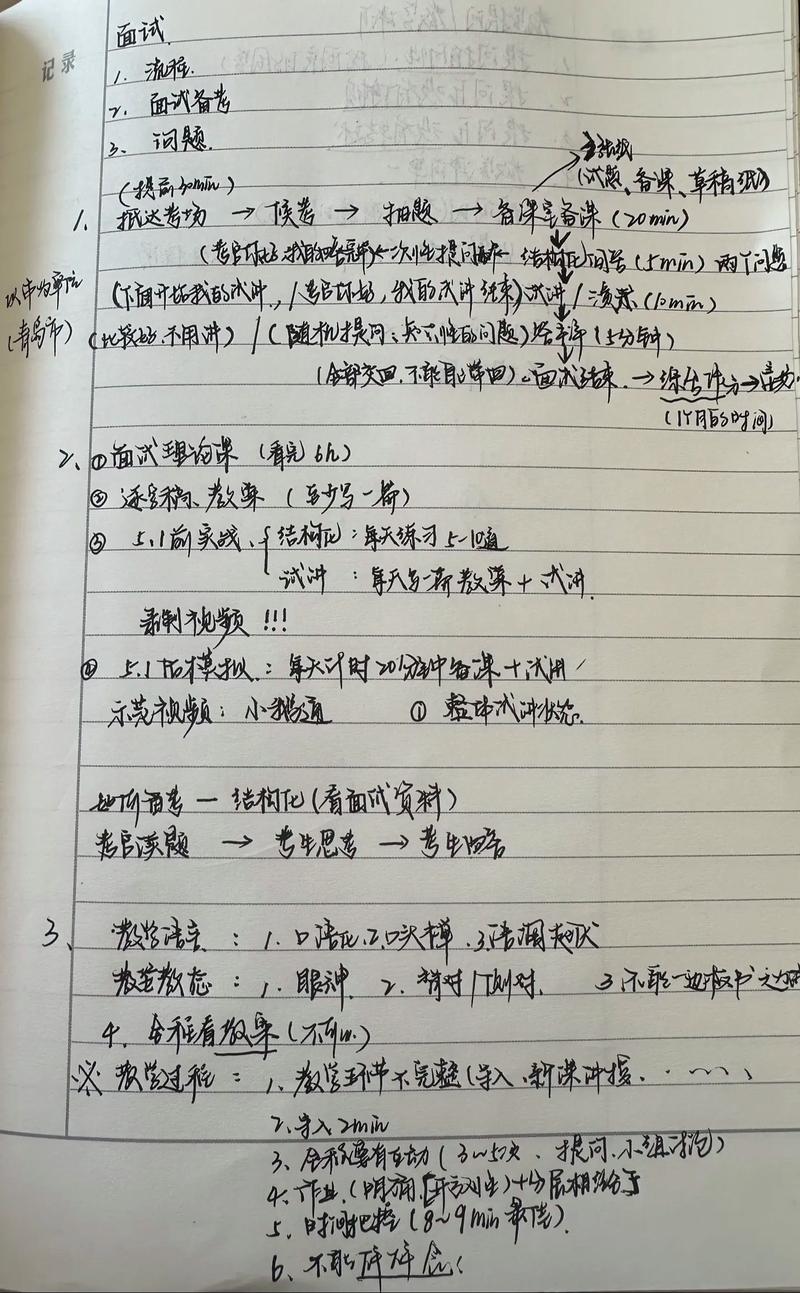 记录
面试
1. 流程
2. 面试备考
3. 问题
(提前30min)
(试题、备课、草稿纸)
1. 抵达考场 → 候考 → 抽题 → 备课室备课 (20min)
结构化回答 (5min) 两个问题
以市为单位
(青岛市)
(下面开始我的试讲 / 考官你好, 我的试讲结束) 试讲 / 演课 (10min)
(比较好, 不用讲) / (随机提问: 知识性的问题) 答辩 (5分钟)
(全部交回, 不能带回) 面试结束 →
(1个月的时间)
2、① 面试理论课 (看完6h)
② 逐字稿、教案 (至少写一篇)
③ 5.1前实战、{ 结构化: 每天练习 5-10道
试讲: 每天写一篇教案 + 试讲
录制视频 !!!
④ 5.1后模拟: 每天计时20分钟备课 + 试讲
示范视频: ① 整体试讲状态.
结构化 (看面试资料)
考官读题 → 考生思考 → 考生回答
3、 教学语言: 1. 口语化 2. 口头禅 3. 语调起伏
教姿教态: 1. 眼神. 2. 背对 / 侧对. 3. 不能一边板书
4. 全程看教案 (不可以)
※ 教学过程: 1、教学环节不完整 (导入、新课讲授、
2. 导入2min
3、全程要有互动 (3~5次、提问、小组讨论)
4、作业
5、时间把控 (8~9min最佳)
6、不能